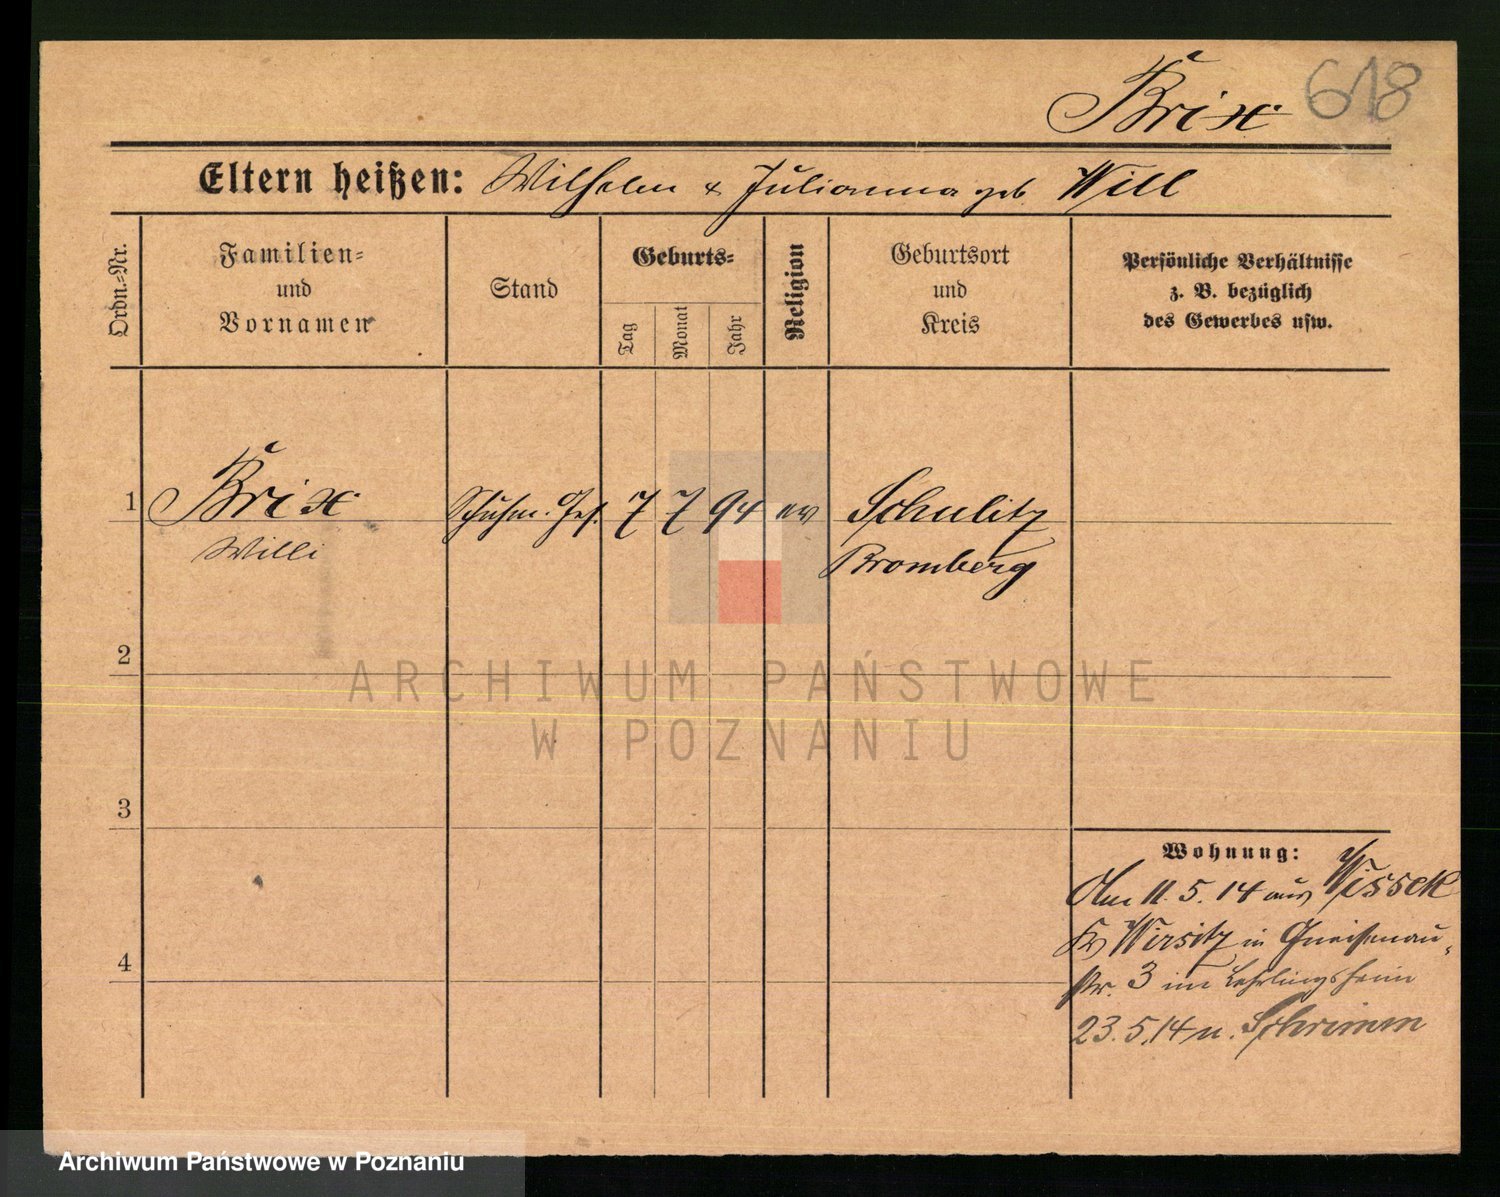 Brix
618
Eltern heißen: Wilhelm & Julianna geb Will
Ordn.-Nr.
Familien-
und
Vornamen
Stand
Geburts-
Tag
Monat
Jahr
Religion
Geburtsort
und
Kreis
Persönliche Verhältnisse
z. B. bezüglich
des Gewerbes usw.
1
Brix
Schuhm. Ges.
7
7
94
ev
Schulitz
Willi
Bromberg
2
ARCHIWUM PAŃSTWOWE
W POZNANIU
3
Wohnung:
Am 11. 5. 14 aus Wissek
Kr Wirsitz in Gneisenau-
4
str. 3 im Lehrlingsheim
23.5.14 n. Schrimm
Archiwum Państwowe w Poznaniu